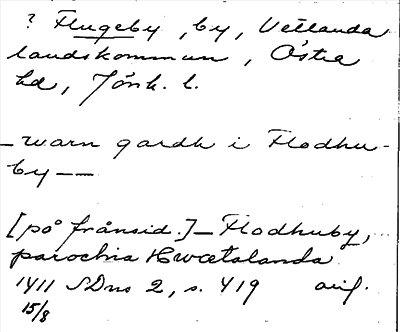 ? Flugeby, by, Vetlanda
landskommun, Östra
hd, Jönk. l.
– warn gardh i Flodhu-
by ––
[på frånsid.] – Flodhuby,
parochia Hwætalanda
1411 SDns 2, s. 419 orig.
15/8